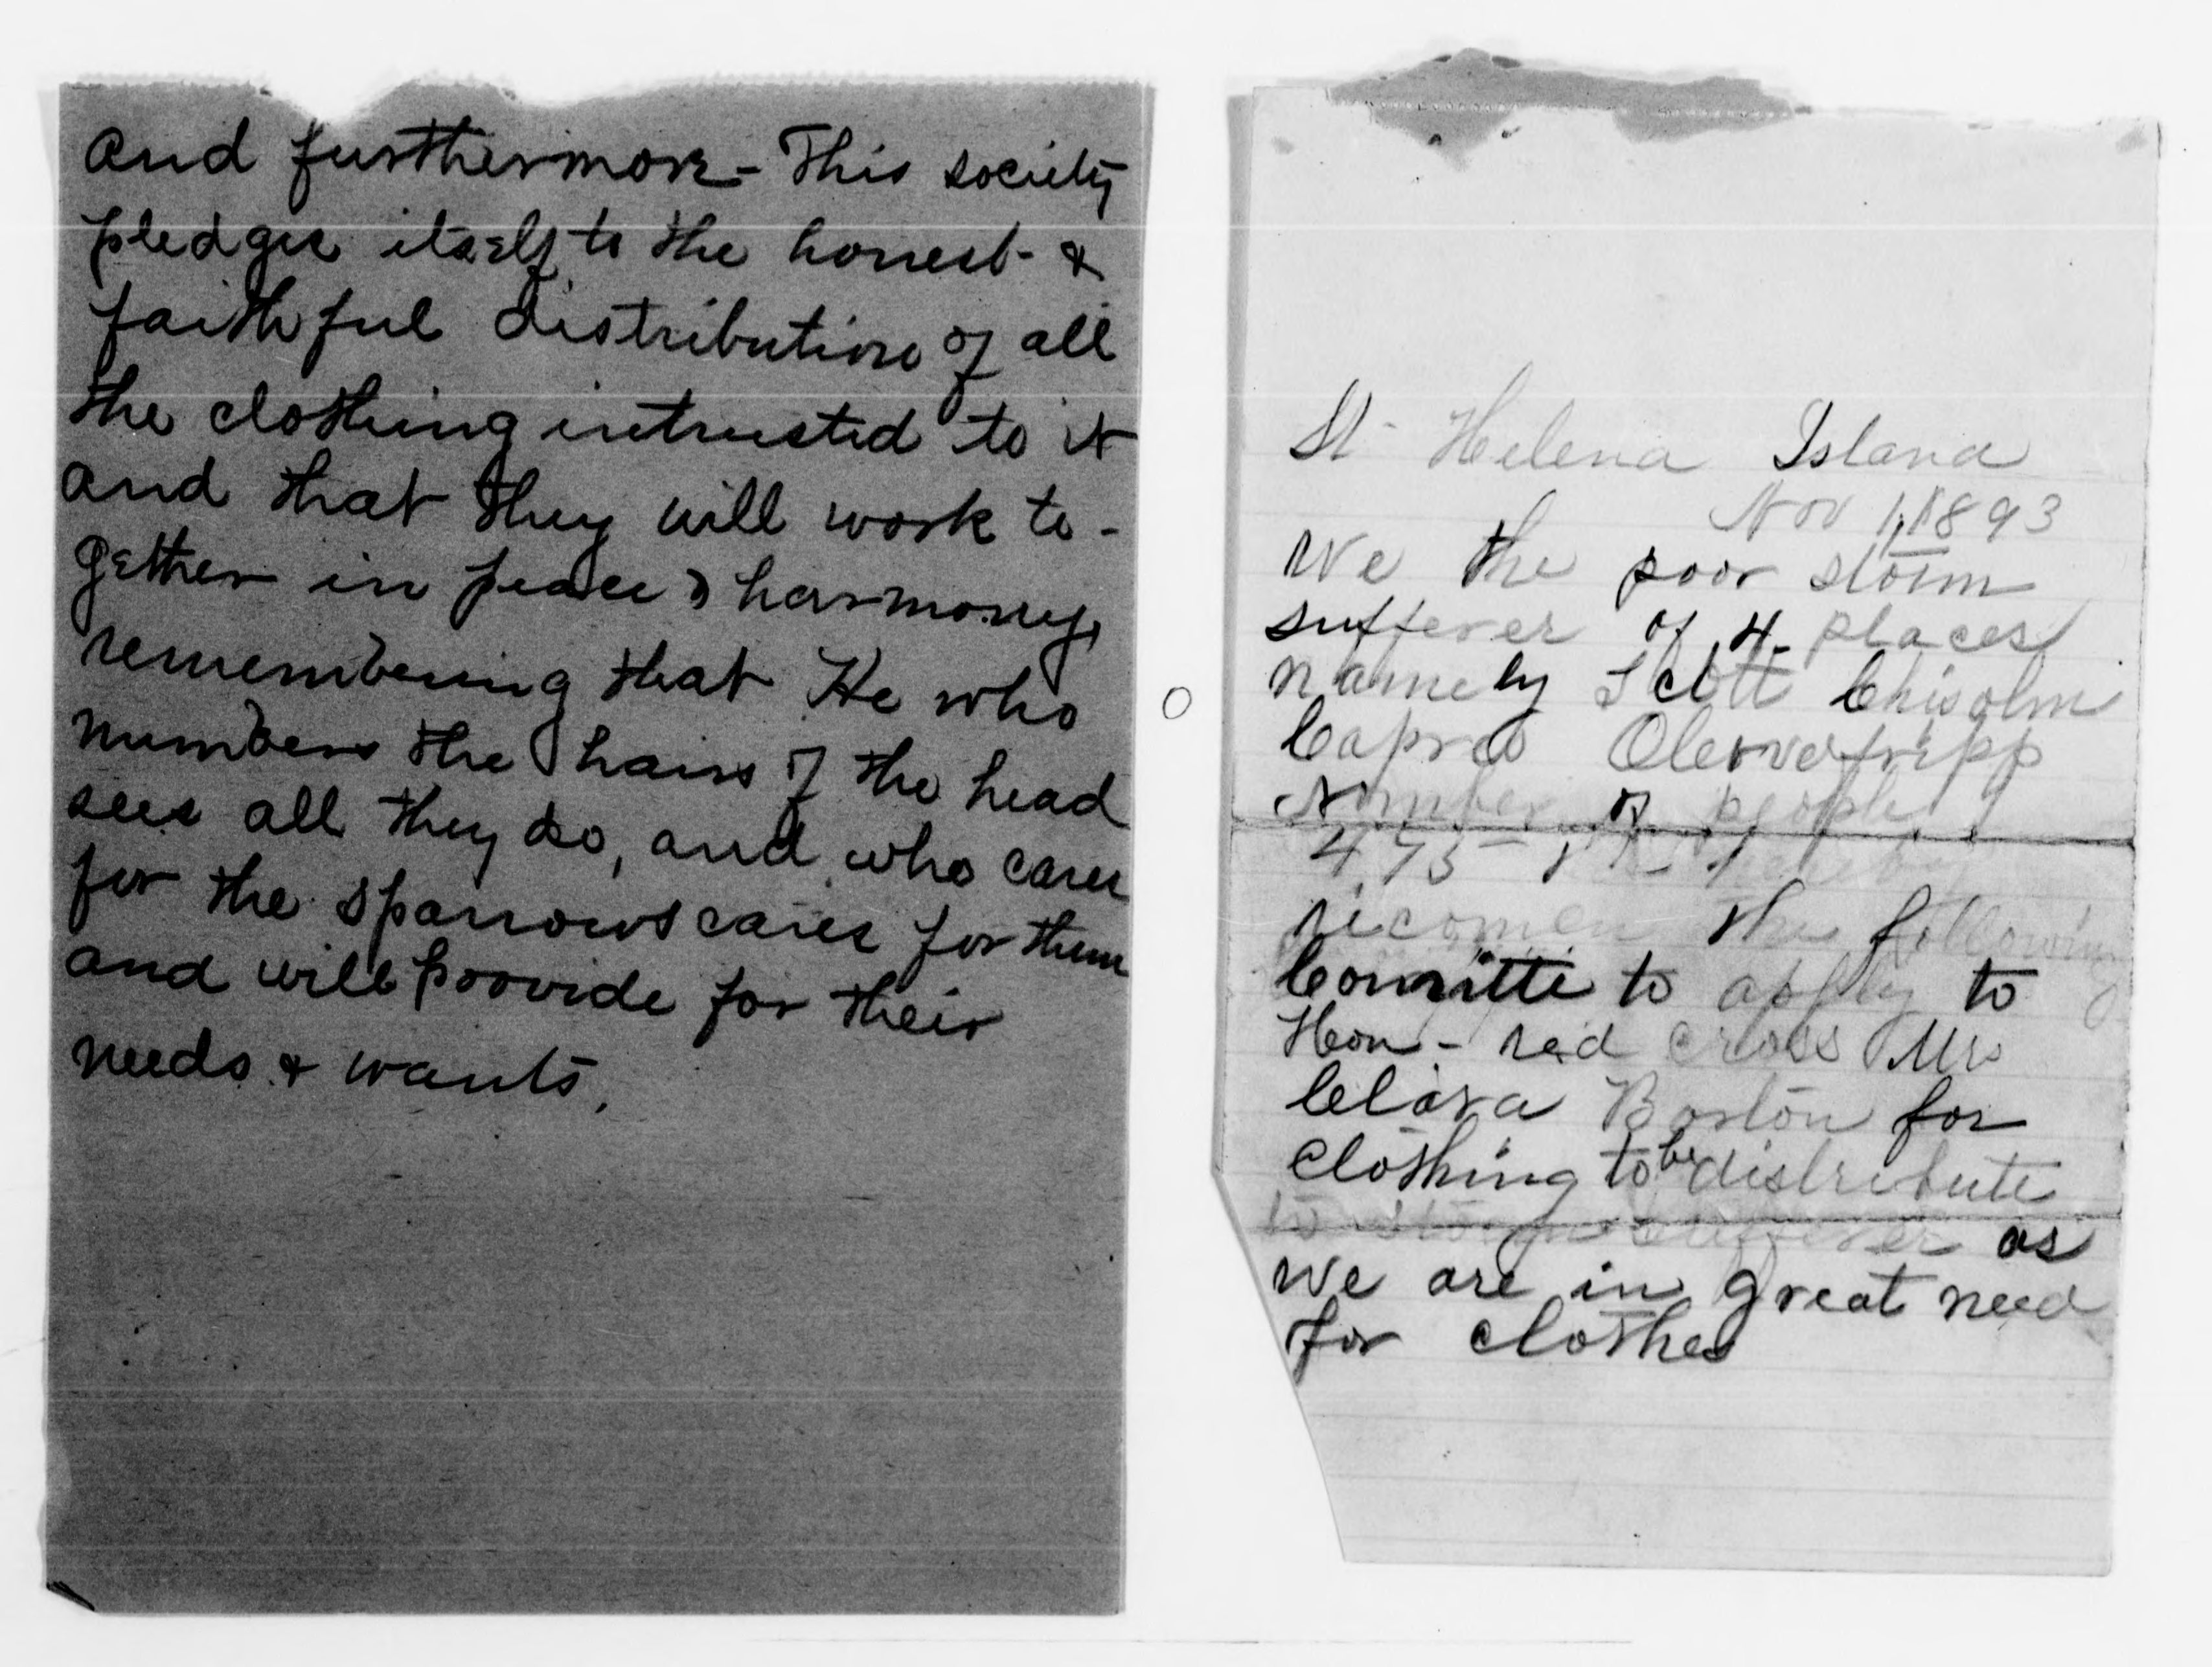 and furthermore - This society
pledges itself to the honest &
faithful distribution of all
the clothing intrusted to it
and that they will work to-
gether in peace & harmony,
remembering that He who
numbers the hairs of the head
sees all they do, and who cares
for the sparrows cares for them
and will provide for their
needs & wants.
St Helena Island
Nov 1, 1893
We the poor storm
sufferer of 4 places
namely Scott Chisolm
Capres Oleove fripp
Number of people
475 hereby
recomen the following
Committe to apply to
Hon - red cross Mr
Clara Barton for
Clothing to be distribute
to storm sufferer as
we are in great need
for clothes